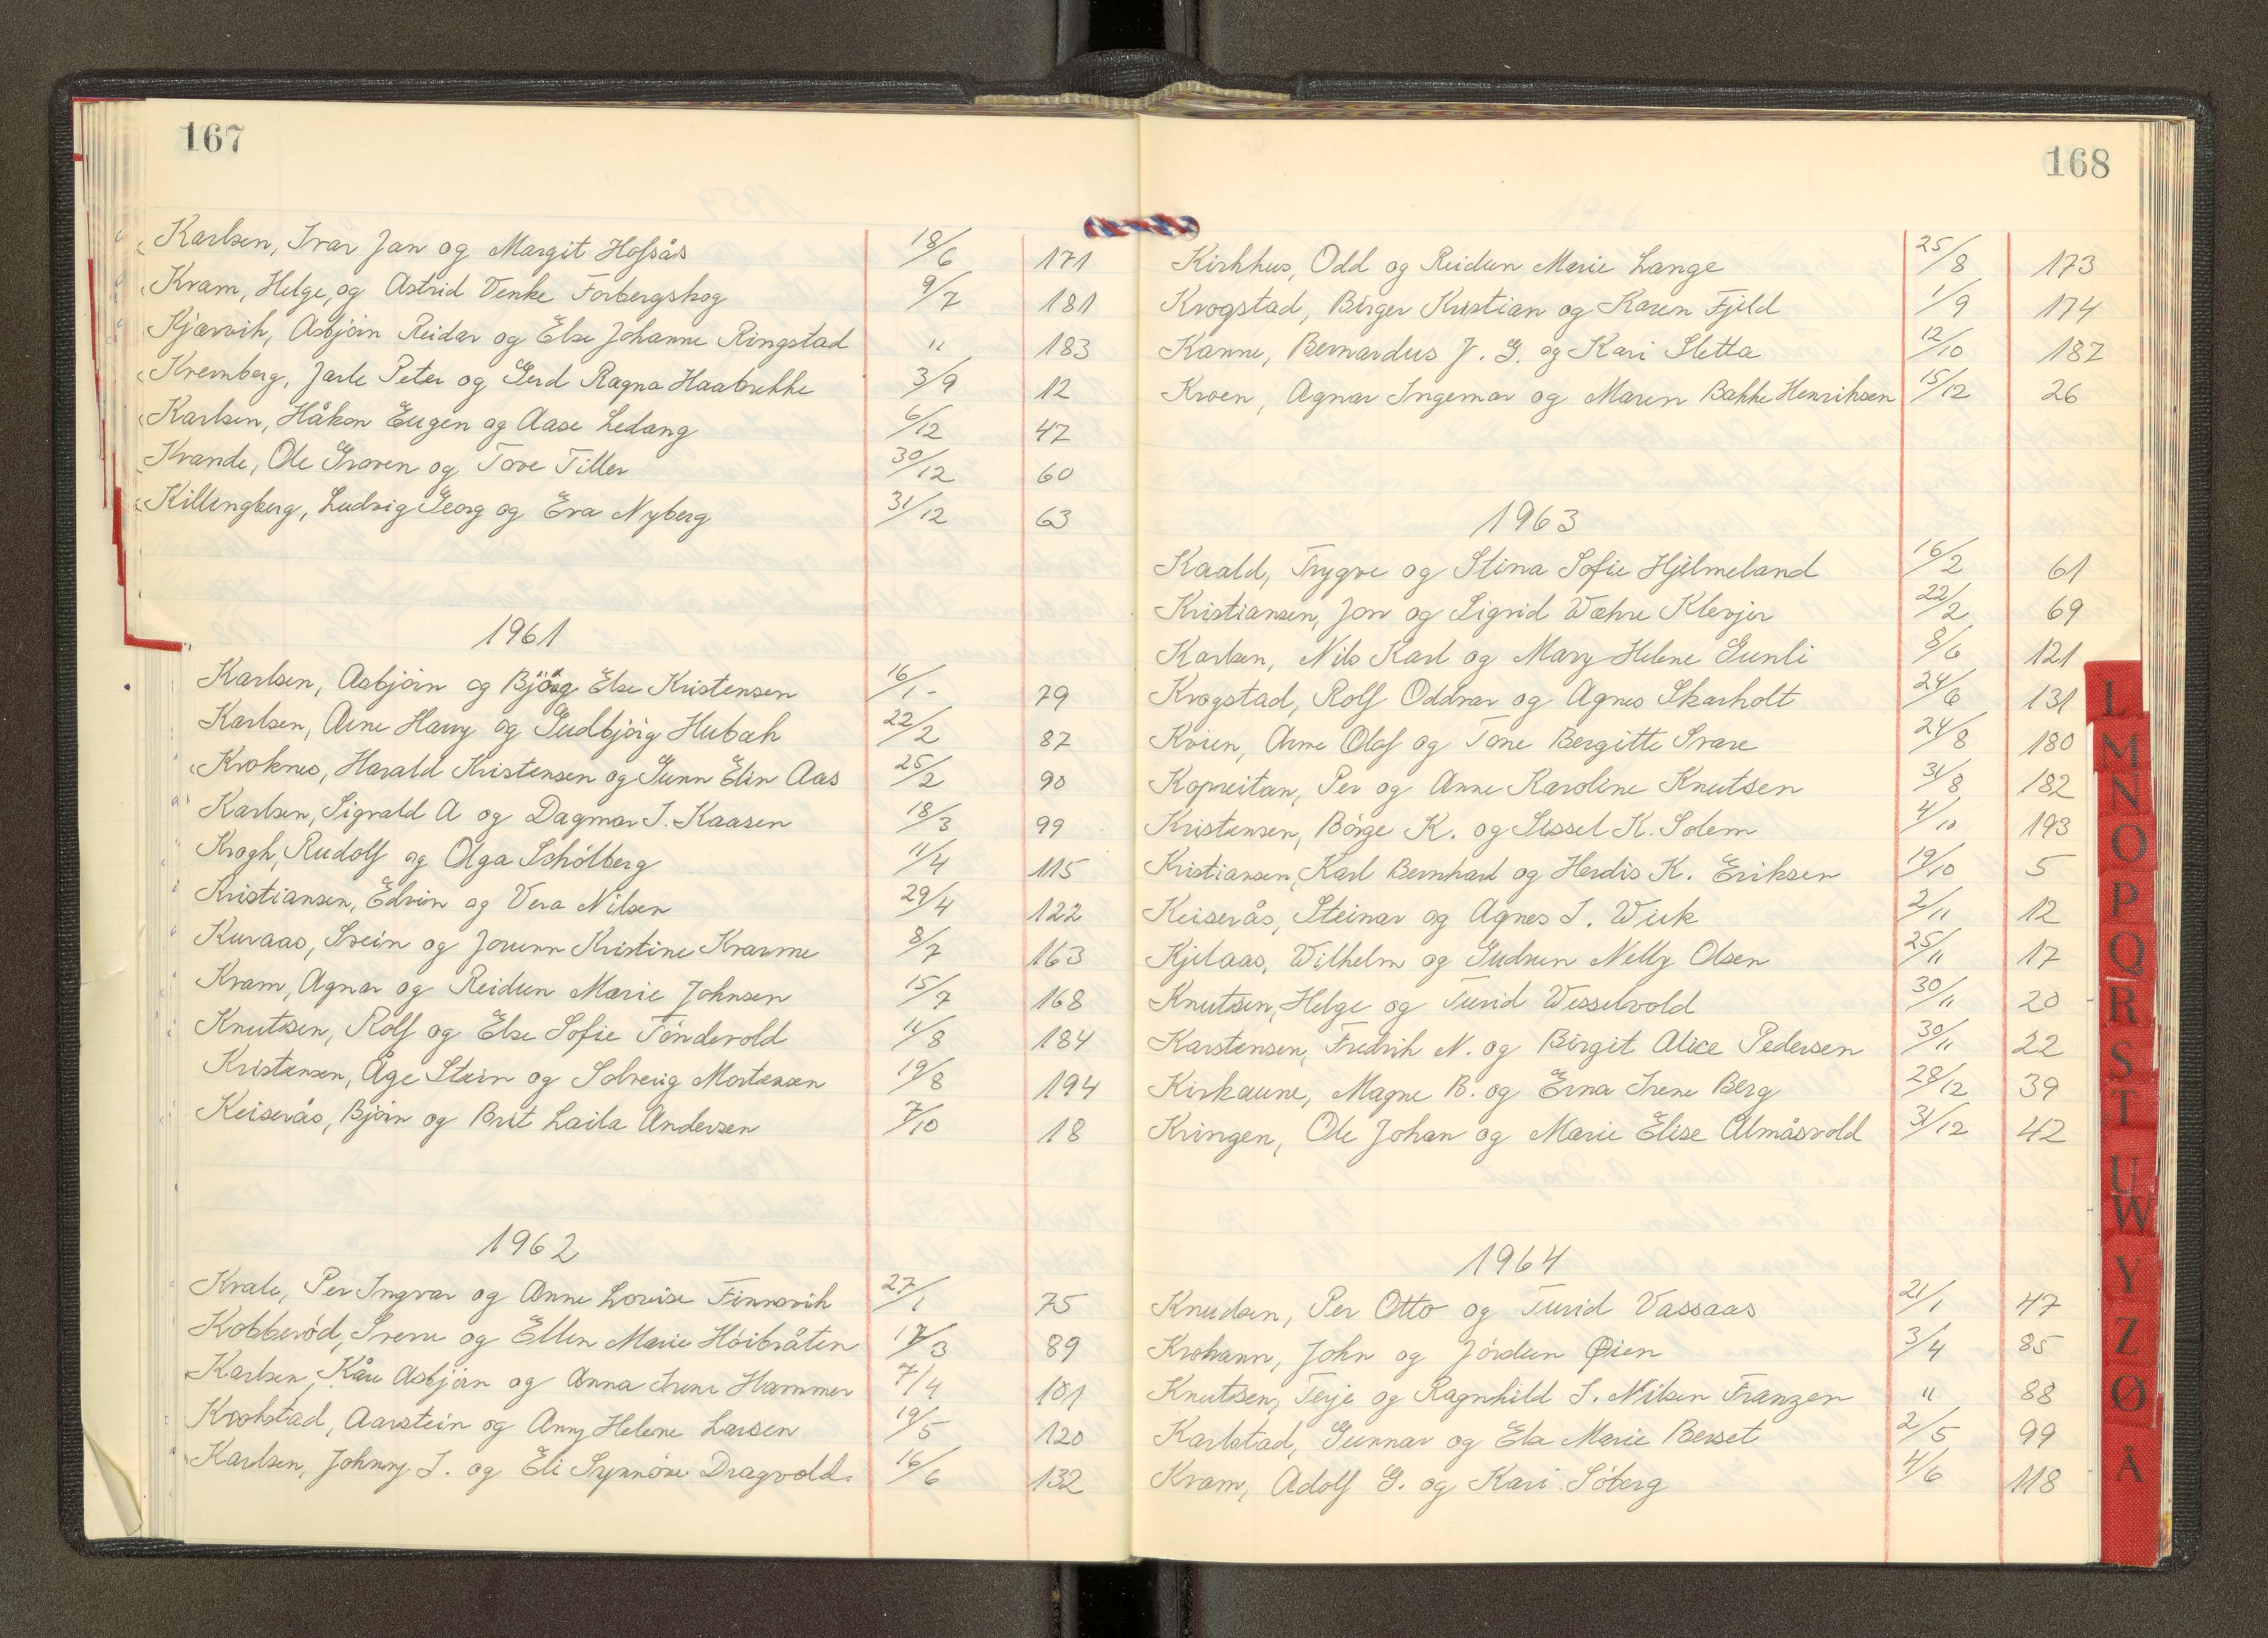 167
Karlsen, Ivar Jan og Margit Hofsås 18/6 171
Kram, Helge, og Astrid Venke Forbergskog 9/7 181
Kjærvik, Asbjörn Reidar og Else Johanne Ringstad " 183
Kremberg, Jarle Peter og Gerd Ragna Haabrekke 3/9 12
Karlsen, Håkon Eugen og Aase Ledang 6/12 47
Krande, Ole Graven og Tove Tiller 30/12 60
Killingberg, Ludvig Georg og Eva Nyberg 31/12 63
1961
Karlsen, Asbjörn og Björg Else Kristensen 16/1 - 79
Karlsen, Arne Harry og Gudbjörg Hubak 22/2 87
Kroknes, Harald Kristensen og Gunn Elin Aas 25/2 90
Karlsen, Sigvald A og Dagmar I. Kaasen 18/3 99
Krogh, Rudolf og Olga Schölberg 11/4 115
Kristiansen, Edvin og Vera Nilsen 29/4 122
Kuvaas, Svein og Jorunn Kristine Kvarme 8/7 163
Kram, Agnar og Reidun Marie Johnsen 15/7 168
Knutsen, Rolf og Else Sofie Töndevold 11/8 184
Kristensen, Åge Stein og Solveig Mortensen 19/8 194
Keiserås, Björn og Brit Laila Andersen 7/10 18
1962
Kvale, Per Ingvar og Anne Lovise Finnsvik 27/1 75
Kobberöd, Sverre og Ellen Marie Höibråten 17/3 89
Karlsen, Kåre Asbjörn og Anna Irene Hammer 7/4 101
Krokstad, Aarstein og Anny Helene Larsen 19/5 120
Karlsen, Johnny I. og Eli Synnöve Dragvold. 16/6 132
168
Kirkhus, Odd og Reidun Marie Lange 25/8 173
Krogstad, Birger Kristian og Karen Fjeld 1/9 174
Kanne, Bernardus J. G. og Kari Sletta 12/10 187
Kroen, Agnar Ingemar og Maren Bakke Henriksen 15/12 26
1963
Kaald, Trygve og Stina Sofie Hjelmeland 16/2 61
Kristiansen, Jon og Sigrid Wæhre Klevjer 22/2 69
Karlsen, Nils Karl og Mary Helene Gunli 8/6 121
Krogstad, Rolf Oddvar og Agnes Skarholt 24/6 131
Kvien, Arne Olaf og Tone Bergitte Svare 24/8 180
Kopreitan, Per og Anne Karoline Knutsen 31/8 182
Kristensen, Börge K. og Sissel K. Solem 4/10 193
Kristiansen, Karl Bernhard og Herdis K. Eriksen 19/10 5
Keiserås, Steinar og Agnes I. Wiik 2/11 12
Kjelaas, Wilhelm og Gudrun Nelly Olsen 25/11 17
Knutsen, Helge og Turid Wesselvold 30/11 20
Karstensen, Fredrik N. og Birgit Alice Pedersen 30/11 22
Kirkaune, Magne B. og Erna Irene Berg 28/12 39
Kringen, Ole Johan og Marie Elise Almåsvold 31/12 42
1964
Knudsen, Per Otto og Turid Vassaas 21/1 47
Krokann, John og Jördun Øien 3/4 85
Knutsen, Terje og Ragnhild S. Nilsen Franzen " 88
Karlstad, Gunnar og Else Marie Berset 2/5 99
Kram, Adolf G. og Kari Söberg 4/6 118
L
M
N
O
P
Q
R
S
T
U
W
Y
Z
Ø
A